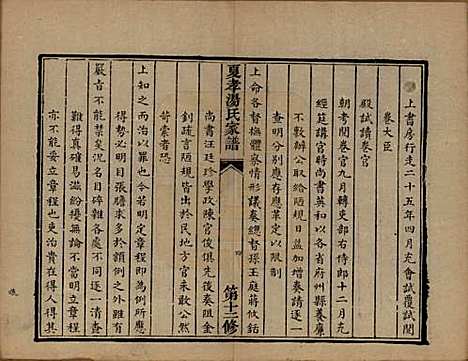 上書房行走二十五年四月充會試覆試閱
卷大臣
殿試讀卷官
朝考閱卷官九月轉吏部右侍郎十二月充
經筵講官時尚書英和以各省府州縣養廉
不敷辦公取給陋規日益加增奏請逐一
查明分別應存應革定以限制
上命各督撫體察情形議奏總督孫玉庭蔣攸銛
夏孝湯氏家譜
第十二修
尚書汪廷珍學政陳官俊俱先後奏阻金
釗疏言陋規皆出於民地方官未敢公然
苛索者恐
上知之而治以罪也今若明定章程即為例所應
得勢必明目張膽求多於額例之外雖有
嚴旨不能禁矣況名目碎雜各處不同逐一清查
易滋紛擾無論不當明定章程
亦不能妥立章程也吏治貴在得人得其